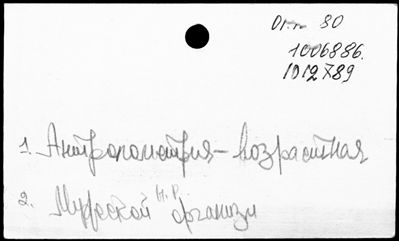 Отт 80
1006886.
1012789
1. Антропометрия – возрастная
2. Мужской организм